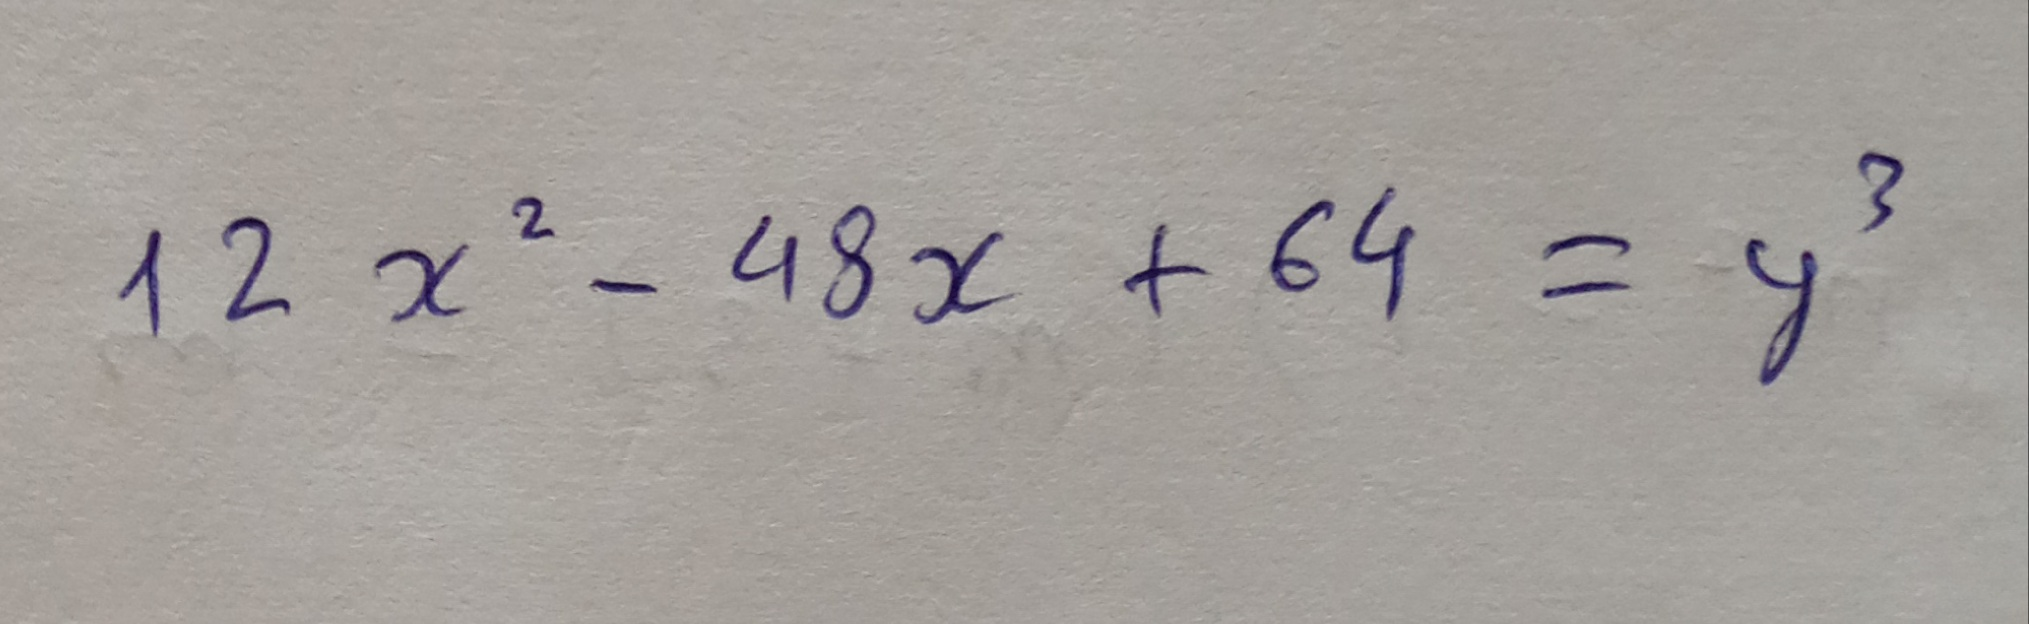 12 x² - 48x + 64 = y³